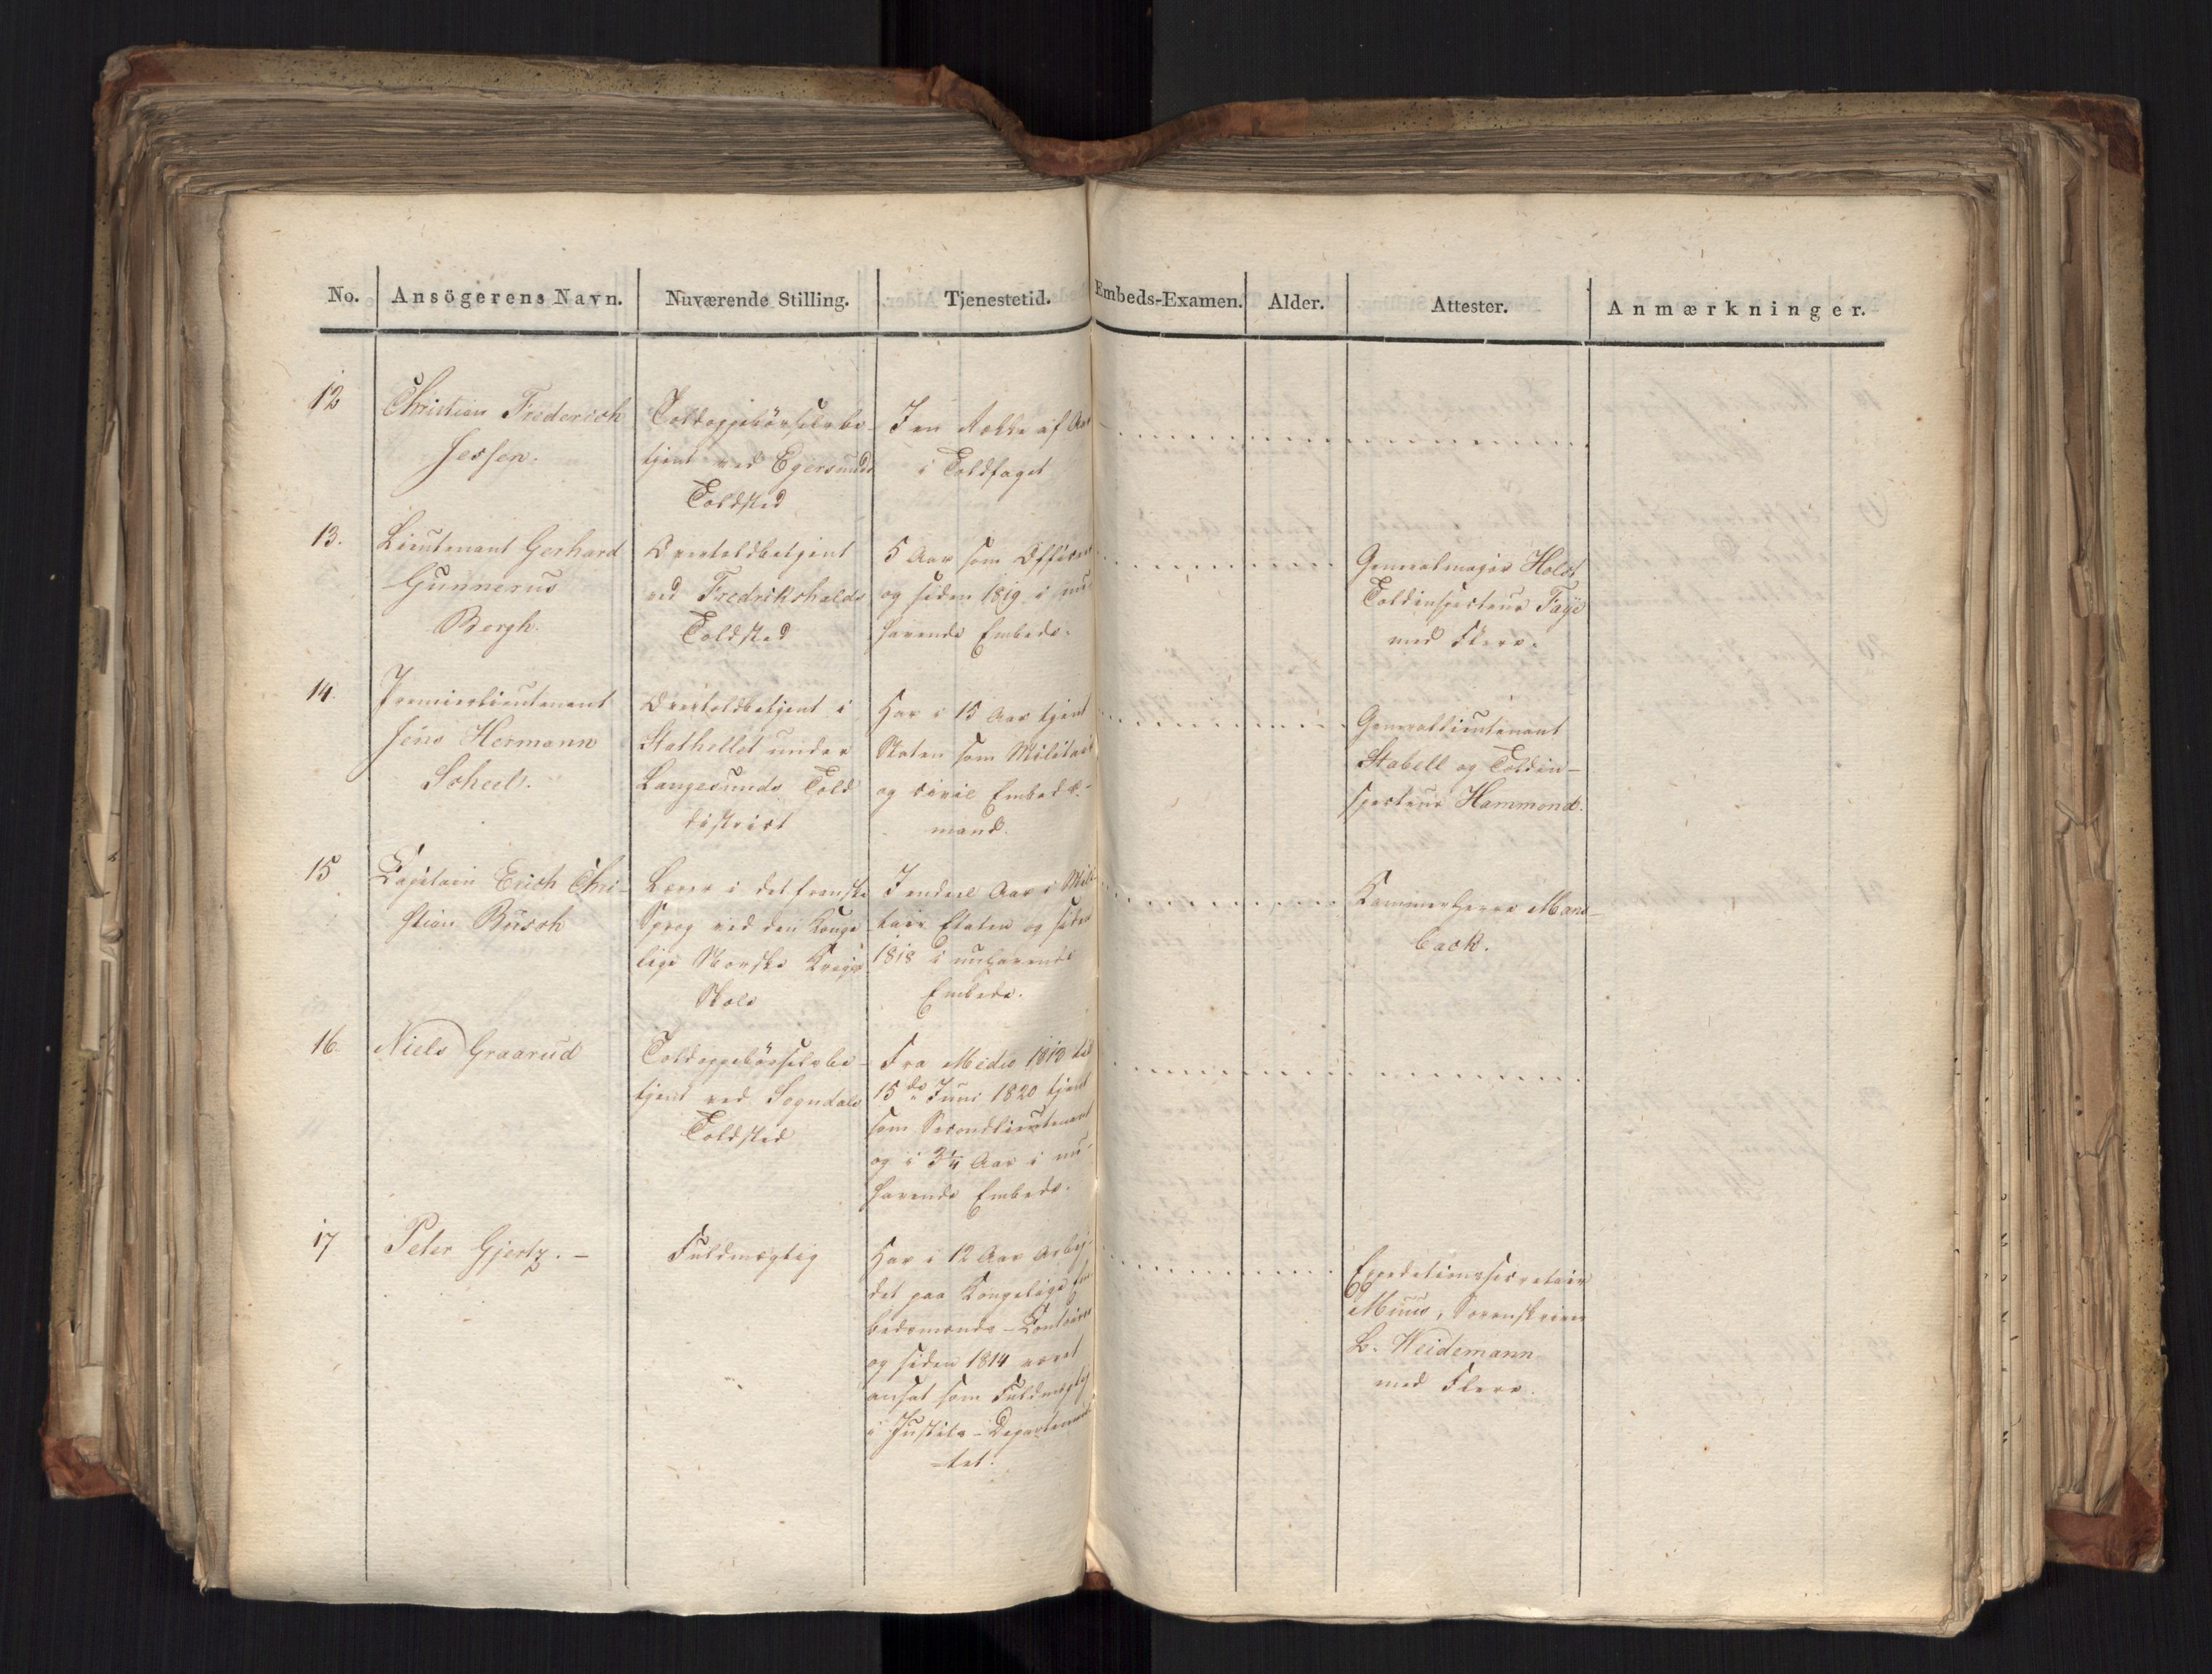 No. Ansögerens Navn. Nuværende Stilling. Tjenestetid. Embeds-Examen. Alder. Attester. Anmærkninger.
12
Christian Frederich
Jessen.
Toldoppebörselsbe-
tjent ved Egersunds
Toldsted
I en Række af Aar
i Toldfaget
13.
Lieutenant Gerhard
Gunnerus
Bergh.
Overtoldbetjent
ved Fredrikshalds
Toldsted
5 Aar som Officeer
og siden 1819 i nu
havende Embede.
Generalmajor Holst
Toldinspecteur Faye
med Flere.
14.
Premierlieutenant
Jens Hermann
Scheel.
Overtoldbetjent i
Stathellet under
Langesunds Told
district
Har i 15 Aar tjent
Staten som Militair
og civil Embeds-
mand.
Generallieutenant
Stabell og Toldin-
specteur Hammond.
15
Capitain Erich Chri-
stian Busch
Lærer i det franske
Sprog ved den Konge
lige Norske Krigs
Skole
I endeel Aar i Mili-
tair Etaten og siden
1818 i nuhavende
Embede.
Kammerherre Mans-
back.
16.
Niels Graarud
Toldoppebörselsbe-
tjent ved Sogndals
Toldsted
Fra Medio 1810 til
15de Juni 1820 tjent
som Secondlieutenant
og i 3/4 Aar i nu-
havende Embede.
17
Peter Gjertz. -
Fuldmægtig
Har i 12 Aar arbej-
det paa Kongelige Em-
bedsmænds-Contoirer
og siden 1814 været
ansat som Fuldmægtig
i Justits-Departemen-
-tet.
Expeditionssecretair
Muus, Sorenskriver
L. Weidemann
med Flere.